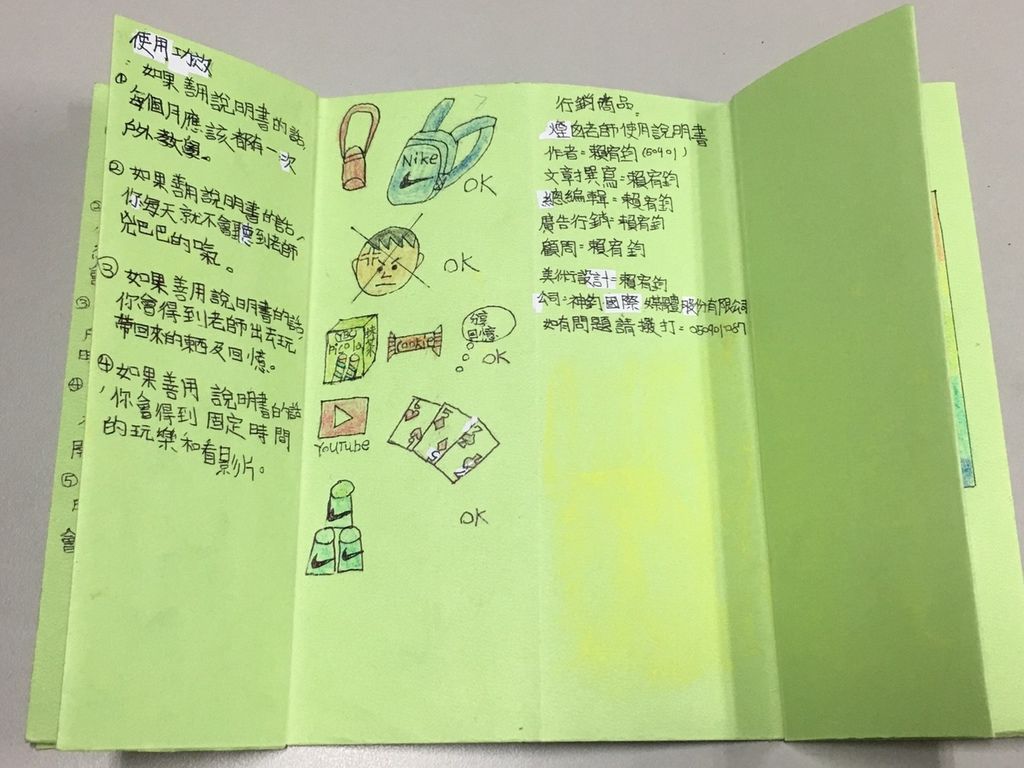 使用功效
① 如果善用說明書的話,
每個月應該都有一次
戶外教學。
② 如果善用說明書的話,
你每天就不會聽到老師
兇巴巴的口氣。
③ 如果善用說明書的話,
你會得到老師出去玩
帶回來的東西及回憶。
④ 如果善用說明書的話
,你會得到固定時間
的玩樂和看影片。
Nike
OK
OK
cookie
分享
回憶
OK
YouTube
OK
行銷商品:
老師使用說明書
作者:賴宥鈞(50401)
文章撰寫:賴宥鈞
總編輯:賴宥鈞
廣告行銷:賴宥鈞
顧問:賴宥鈞
美術設計:賴宥鈞
公司:神鈞國際媒體股份有限公司
如有問題請撥打:
③
④
⑤
會